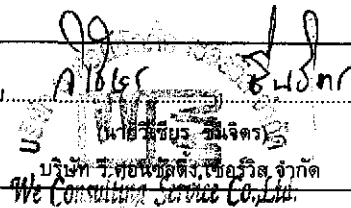 วิเชียร ชินจิตร
(นายวิเชียร ชินจิตร)
บริษัท วี.คอนซัลติ้ง.เซอร์วิส จำกัด
We Consulting Service Co.,Ltd.